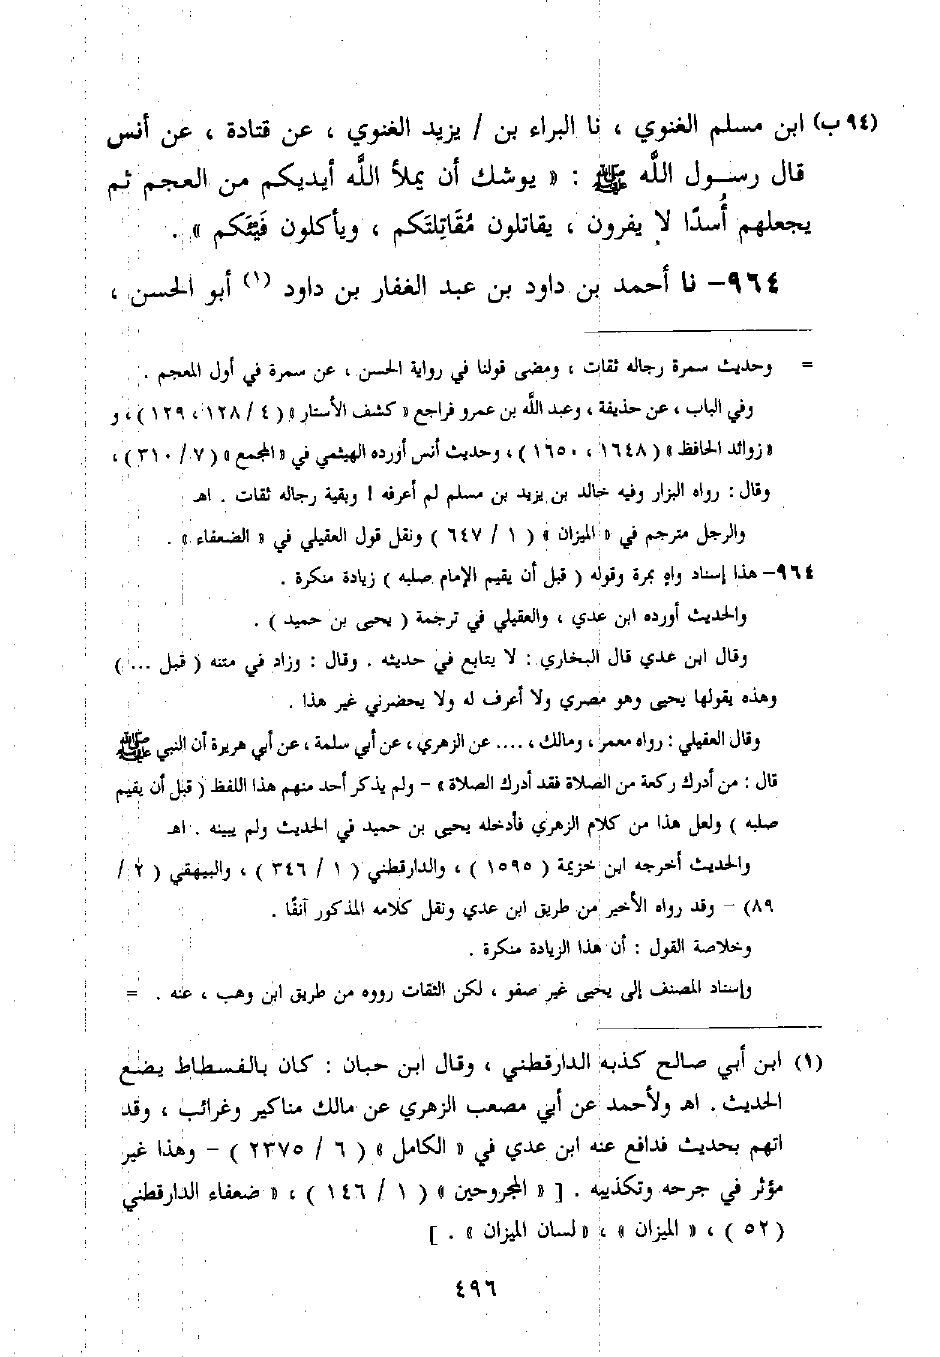 (٩٤ ب) ابن مسلم الغنوي ، نا البراء بن / يزيد الغنوي ، عن قتادة ، عن أنس
قال رسول اللَّه ﷺ : « يوشك أن يملأ اللَّه أيديكم من العجم ثم
يجعلهم أُسدًا لا يفرون ، يقاتلون مُقَاتِلتَكم ، ويأكلون فَيْئَكم » .
٩٦٤– نا أحمد بن داود بن عبد الغفار بن داود (١) أبو الحسن ،
= وحديث سمرة رجاله ثقات ، ومضى قولنا في رواية الحسن ، عن سمرة في أول المعجم .
وفي الباب ، عن حذيفة ، وعبد اللَّه بن عمرو فراجع « كشف الأستار » ( ٤ / ١٢٨ ، ١٢٩ ) ، و
« زوائد الحافظ » ( ١٦٤٨ ، ١٦٥٠ ) ، وحديث أنس أورده الهيثمي في « المجمع » ( ٧ / ٣١٠ ) ،
وقال : رواه البزار وفيه خالد بن يزيد بن مسلم لم أعرفه ! وبقية رجاله ثقات . اهـ
والرجل مترجم في « الميزان » ( ١ / ٦٤٧ ) ونقل قول العقيلي في « الضعفاء » .
٩٦٤– هذا إسناد واهٍ بمرة وقوله ( قبل أن يقيم الإمام صلبه ) زيادة منكرة .
والحديث أورده ابن عدي ، والعقيلي في ترجمة ( يحيى بن حميد ) .
وقال ابن عدي قال البخاري : لا يتابع في حديثه . وقال : وزاد في متنه ( قبل ... )
وهذه يقولها يحيى وهو مصري ولا أعرف له ولا يحضرني غير هذا .
وقال العقيلي : رواه معمر ، ومالك ، .... عن الزهري ، عن أبي سلمة ، عن أبي هريرة أن النبي ﷺ
قال : من أدرك ركعة من الصلاة فقد أدرك الصلاة » – ولم يذكر أحد منهم هذا اللفظ ( قبل أن يقيم
صلبه ) ولعل هذا من كلام الزهري فأدخله يحيى بن حميد في الحديث ولم يبينه . اهـ
والحديث أخرجه ابن خزيمة ( ١٥٩٥ ) ، والدارقطني ( ١ / ٣٤٦ ) ، والبيهقي ( ٢ /
٨٩) – وقد رواه الأخير من طريق ابن عدي ونقل كلامه المذكور آنفًا .
وخلاصة القول : أن هذا الزيادة منكرة .
وإسناد المصنف إلى يحيى غير صفو ، لكن الثقات رووه من طريق ابن وهب ، عنه . =
(١) ابن أبي صالح كذبه الدارقطني ، وقال ابن حبان : كان بالفسطاط يضع
الحديث . اهـ ولأحمد عن أبي مصعب الزهري عن مالك مناكير وغرائب ، وقد
اتهم بحديث فدافع عنه ابن عدي في « الكامل » ( ٦ / ٢٣٧٥ ) – وهذا غير
مؤثر في جرحه وتكذيبه . [ « المجروحين » ( ١ / ١٤٦ ) ، « ضعفاء الدارقطني
( ٥٢ ) ، « الميزان » ، « لسان الميزان » . ]
٤٩٦